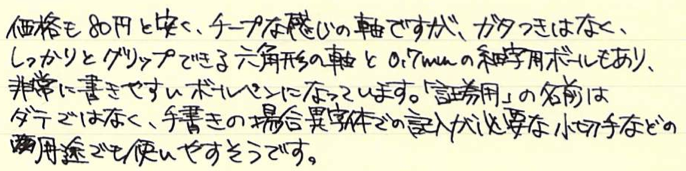 価格も80円と安く、チープな感じの軸ですが、ガタつきはなく、
しっかりとグリップできる六角形の軸と0.7mmの細字用ボールもあり、
非常に書きやすいボールペンになっています。「証券用」の名前は
ダテではなく、手書きの場合異字体での記入が必要な小切手などの
用途でも使いやすそうです。